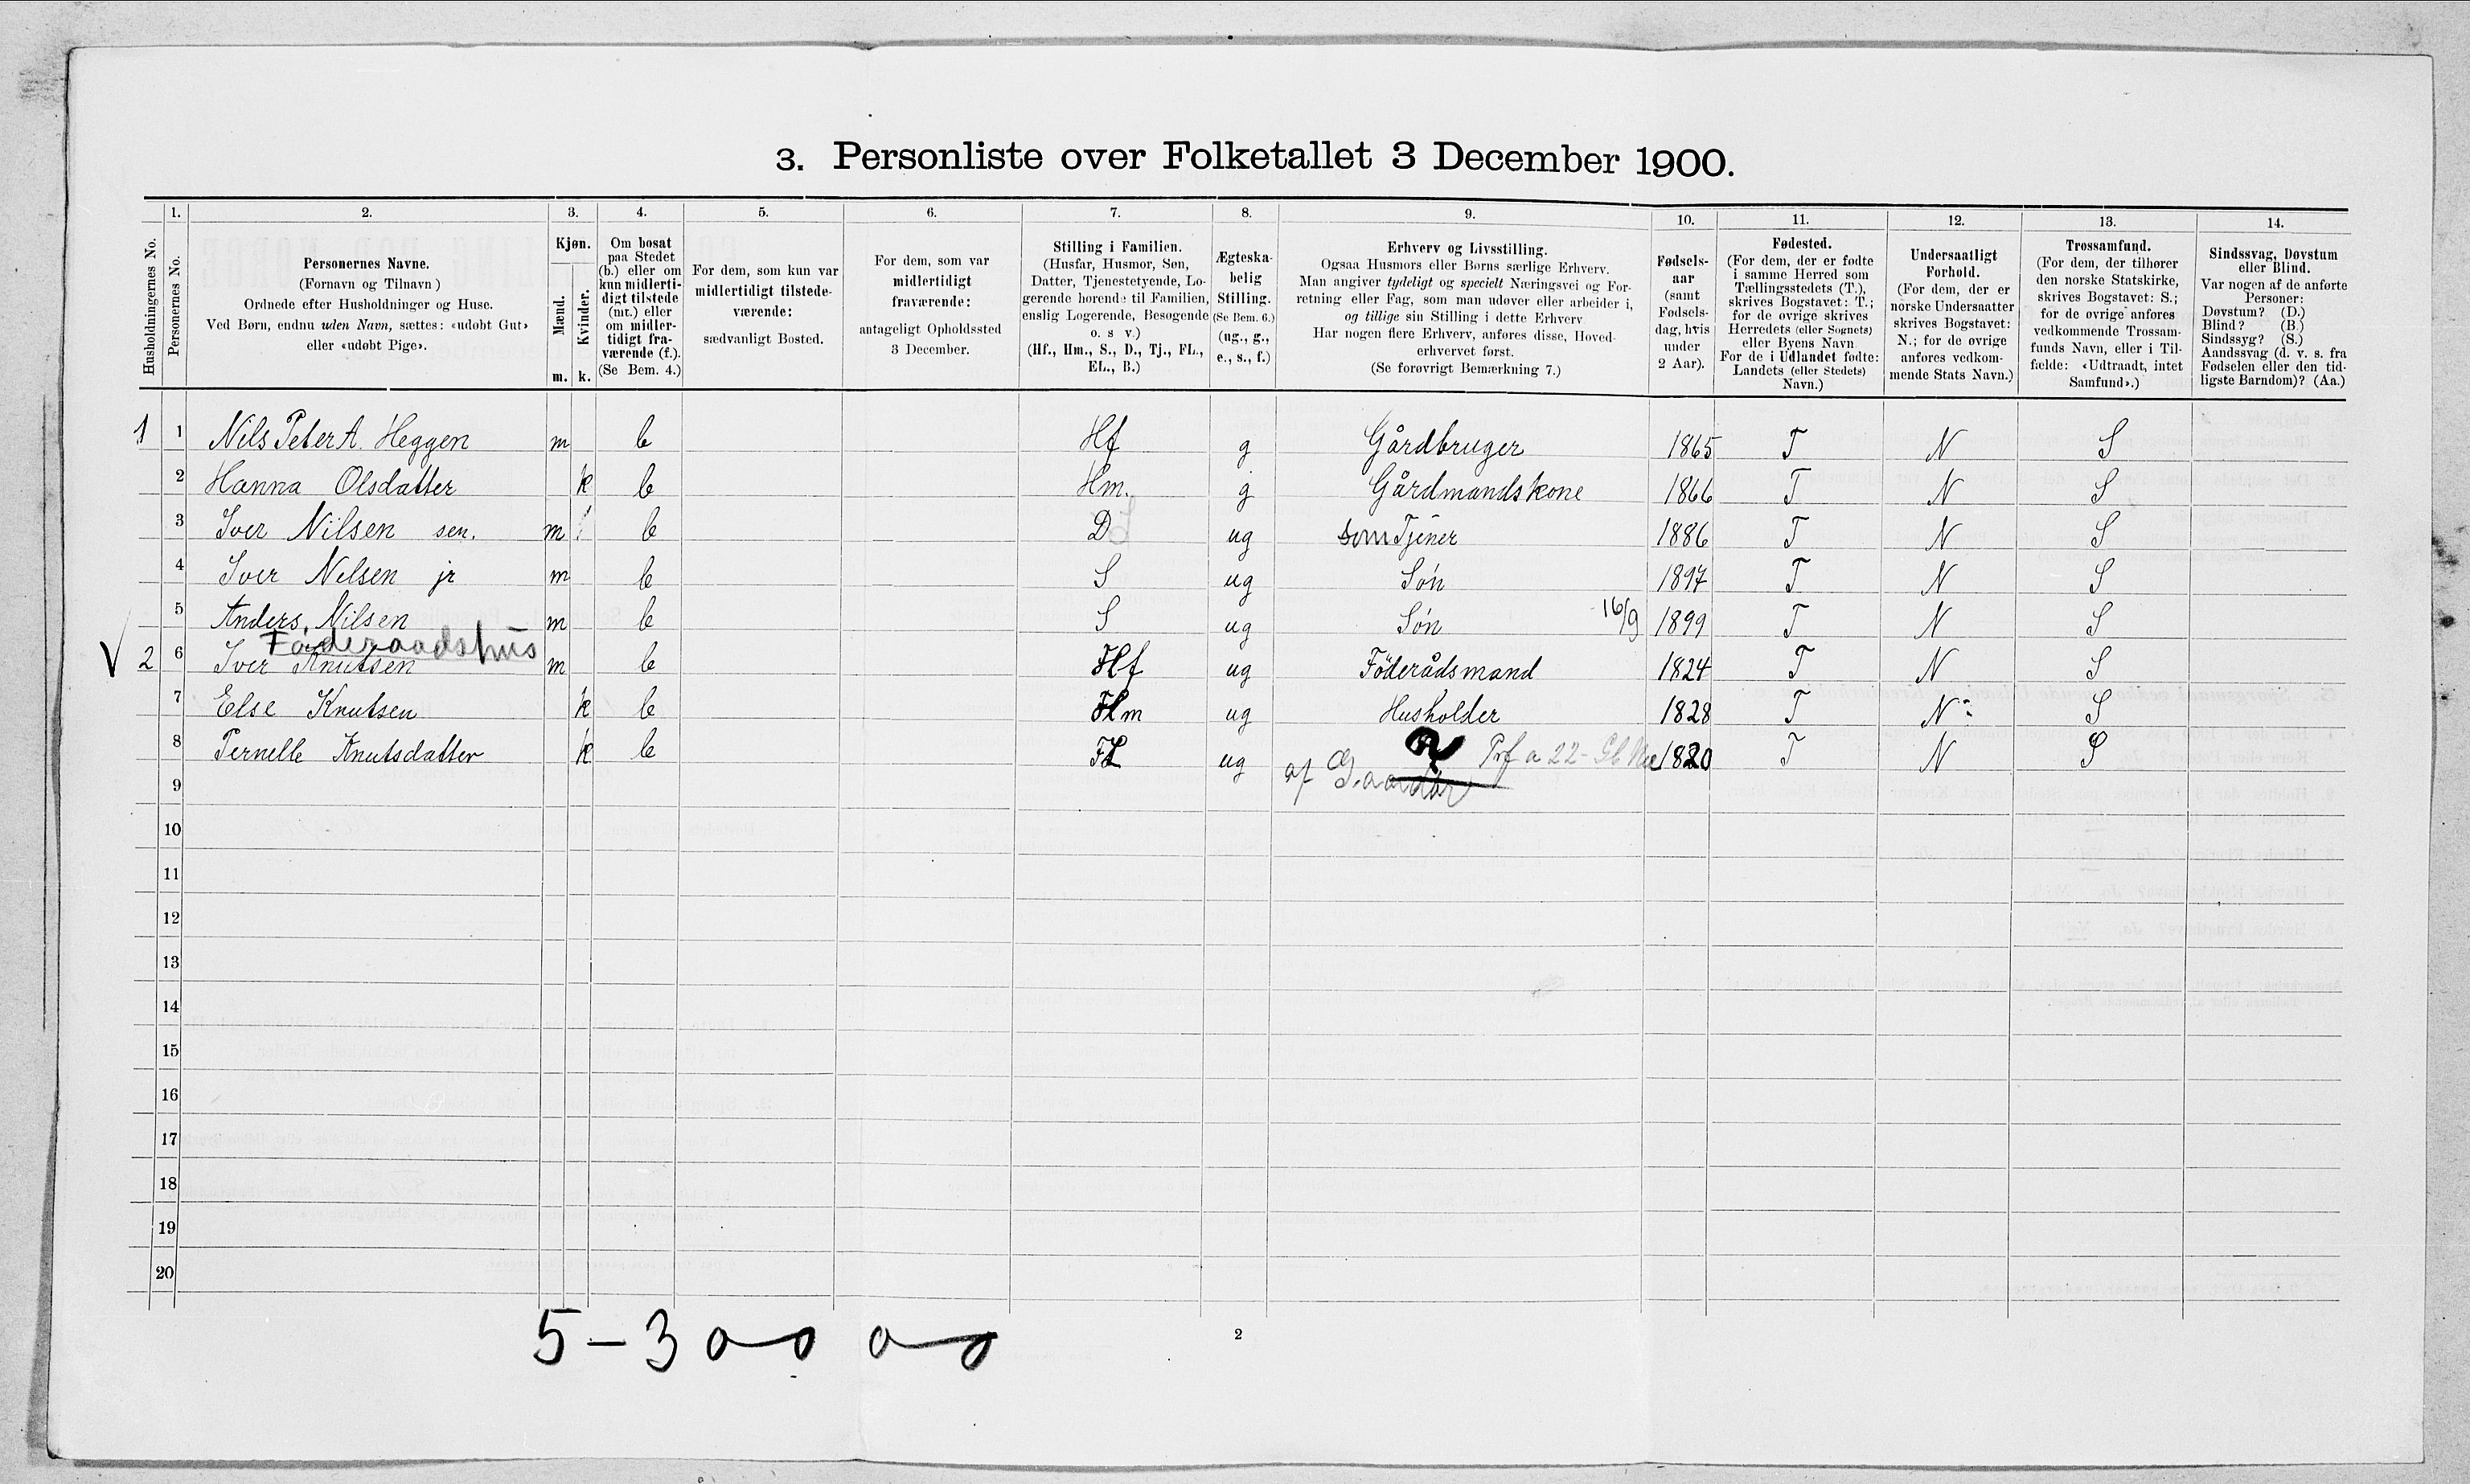 3. Personliste over Folketallet 3 December 1900.
1. 2. 3. 4. 5. 6. 7. 8. 9. 10. 11. 12. 13. 14.
Husholdningernes No.
Personernes No.
Personernes Navne.
(Fornavn og Tilnavn)
Ordnede efter Husholdninger og Huse.
Ved Børn, endnu uden Navn, sættes: «udøbt Gut»
eller «udøbt Pige».
Kjøn.
Mænd.
Kvinder.
m. k.
Om bosat
paa Stedet
(b.) eller om
kun midlerti-
digt tilstede
(mt.) eller
om midler-
tidigt fra-
værende (f.).
(Se Bem. 4.)
For dem, som kun var
midlertidigt tilstede-
værende:
sædvanligt Bosted.
For dem, som var
midlertidigt
fraværende:
antageligt Opholdssted
3 December.
Stilling i Familien.
(Husfar, Husmor, Søn,
Datter, Tjenestetyende, Lo-
gerende hørende til Familien,
enslig Logerende, Besøgende
o. s v.)
(Hf., Hm., S., D., Tj., FL.,
EL., B.)
Ægteska-
belig
Stilling.
(Se Bem. 6.)
(ug., g.,
e., s., f.)
Erhverv og Livsstilling.
Ogsaa Husmors eller Børns særlige Erhverv.
Man angiver tydeligt og specielt Næringsvei og For-
retning eller Fag, som man udøver eller arbeider i,
og tillige sin Stilling i dette Erhverv
Har nogen flere Erhverv, anføres disse, Hoved-
erhvervet først.
(Se forøvrigt Bemærkning 7.)
Fødsels-
aar
(samt
Fødsels-
dag, hvis
under
2 Aar).
Fødested.
(For dem, der er fødte
i samme Herred som
Tællingsstedets (T.),
skrives Bogstavet: T.;
for de øvrige skrives
Herredets (eller Sognets)
eller Byens Navn
For de i Udlandet fødte:
Landets (eller Stedets)
Navn.)
Undersaatligt
Forhold.
(For dem, der er
norske Undersaatter
skrives Bogstavet:
N.; for de øvrige
anføres vedkom-
mende Stats Navn.)
Trossamfund.
(For dem, der tilhører
den norske Statskirke,
skrives Bogstavet: S.;
for de øvrige anføres
vedkommende Trossam-
funds Navn, eller i Til-
fælde: «Udtraadt, intet
Samfund».)
Sindssvag, Døvstum
eller Blind.
Var nogen af de anførte
Personer:
Døvstum? (D.)
Blind? (B.)
Sindssyg? (S.)
Aandssvag (d. v. s. fra
Fødselen eller den tid-
ligste Barndom)? (Aa.)
1 1 Nils Peter A. Heggen m b Hf g Gårdbruger 1865 T N S
2 Hanna Olsdatter k b Hm. g Gårdmandskone 1866 T N S
3 Iver Nilsen sen. m b D ug som Tjener 1886 T N S
4 Iver Nilsen jr m b S ug Søn 1897 T N S
5 Anders Nilsen m b S ug Søn 16/9 1899 T N S
Föderaadshus
2 6 Iver Knutsen m b Hf ug Föderådsmand 1824 T N S
7 Else Knutsen k b Hm ug Husholder 1828 T N S
8 Pernelle Knutsdatter k b FL ug 1820 T N S
af Gaarden
9
10
11
12
13
14
15
16
17
18
19
20
5-3
2